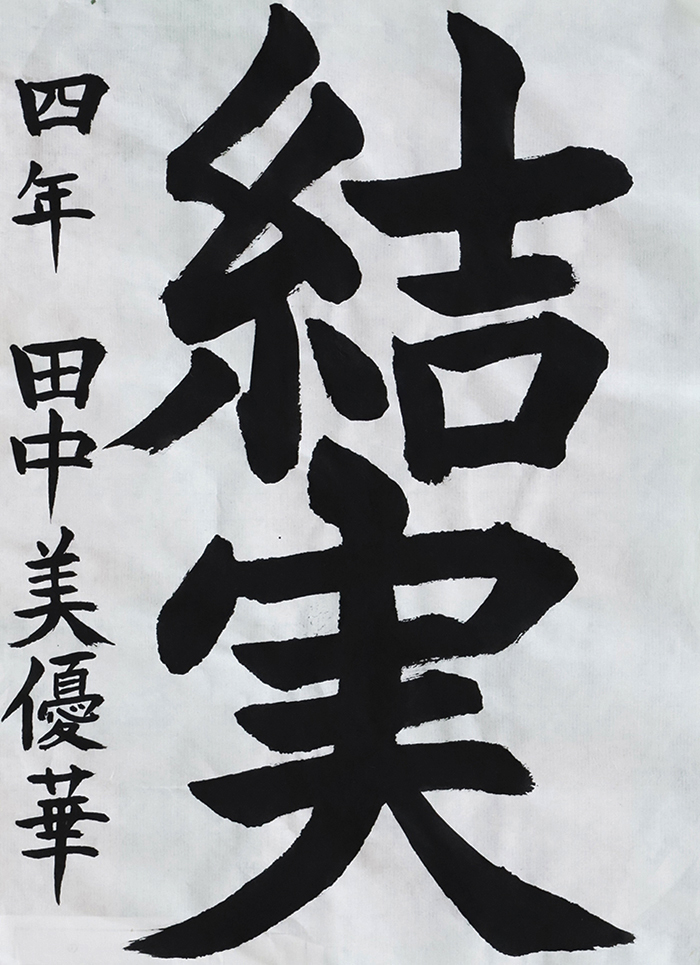 結実
四年 田中美優華